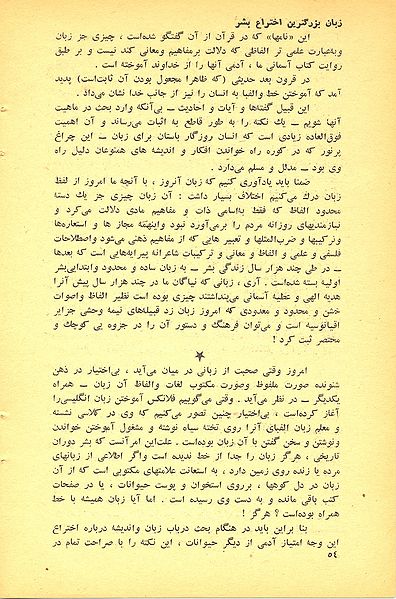 زبان بزرگترین اختراع بشر
این «نامها» که در قرآن از آن گفتگو شده‌است ، چیزی جز زبان
وبه‌عبارت علمی تر الفاظی که دلالت برمفاهیم ومعانی کند نیست و بر طبق
روایت کتاب آسمانی ما ، آدمی آنها را از خداوند آموخته است .
در قرون بعد حدیثی (که ظاهرا مجعول بودن آن ثابت‌است) پدید
آمد که آموختن خط والفبا به انسان را نیز از جانب خدا نشان می‌داد .
این قبیل گفته‌ها و آیات و احادیث ــ بی‌آنکه وارد بحث در ماهیت
آنها شویم ــ یک نکته را به طور قاطع به اثبات می‌رساند و آن اهمیت
فوق‌العاده زیادی است که انسان روزگار باستان برای زبان ــ این چراغ
پرنور که در کوره راه خواندن افکار و اندیشه های همنوعان دلیل راه
وی بود ــ مدلل و مسلم می‌دارد .
ضمنا باید یادآوری کنیم که زبان آنروز ، با آنچه ما امروز از لفظ
زبان درك می‌کنیم اختلاف بسیار داشت : آن زبان چیزی جز یك دسته
محدود الفاظ که فقط به‌اسامی ذات و مفاهیم مادی دلالت می‌کرد و
نیازمندیهای روزانه مردم را برمی‌آورد نبود واینهمه مجاز ها و استعاره‌ها
وترکیبها و ضرب‌المثلها و تعبیر هایی که از مفاهیم ذهنی می‌شود واصطلاحات
فلسفی و علمی و الفاظ و معانی و ترکیبات شاعرانه پیرایه‌هایی است که بعدها
ــ در طی چند هزار سال زندگی بشر ــ به زبان ساده و محدود وابتدایی‌بشر
اولیه بسته شده‌است . آری ، زبانی که نیاگان ما در چند هزار سال پیش آنرا
هدیه الهی و عطیه آسمانی می‌پنداشتند چیزی بوده است نظیر الفاظ واصوات
خشن و محدود و معدودی که امروز زبان زد قبیله‌های نیمه وحشی جزایر
اقیانوسیه است و می‌توان فرهنگ و دستور آن را در جزوه یی کوچك و
مختصر ثبت کرد !
★
امروز وقتی صحبت از زبانی در میان می‌آید ، بی‌اختیار در ذهن
شنونده صورت ملفوظ وصورت مکتوب لغات والفاظ آن زبان ــ همراه
یکدیگر ــ در نظر می‌آید . وقتی می‌گوییم فلانکس آموختن زبان انگلیسی‌را
آغاز کرده‌است ، بی‌اختیار چنین تصور می‌کنیم که وی در کلاسی نشسته
و معلم زبان الفبای آنرا روی تخته سیاه نوشته و مشغول آموختن خواندن
ونوشتن و سخن گفتن با آن زبان بوده‌است . علت‌این امرآنست که بشر دوران
تاریخی ، هرگز زبان را جدا از خط ندیده است واگر اطلاعی از زبانهای
مرده یا زنده روی زمین دارد ، به استعانت علامتهای مکتوبی است که از آن
زبان در دل کوهها ، برروی استخوان و پوست حیوانات ، یا در صفحات
کتب باقی مانده و به دست وی رسیده است . اما آیا زبان همیشه با خط
همراه بوده‌است ؟ هرگز !
بنا براین باید در هنگام بحث درباب زبان واندیشه درباره اختراع
این وجه امتیاز آدمی از دیگر حیوانات ، این نکته را با صراحت تمام در
٥٤